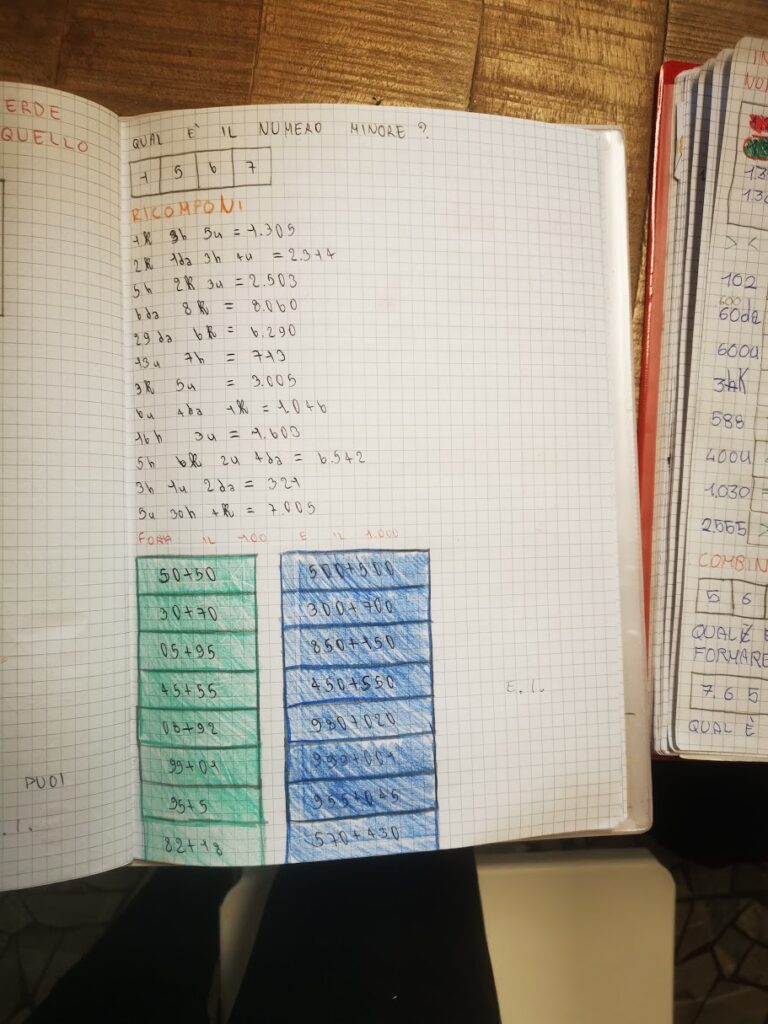 ERDE
QUELLO
PUOI
.I.
QUAL È IL NUMERO MINORE?
1 5 6 7
RICOMPONI
1K 3h 5u = 1.305
2K 1da 3h 4u = 2.314
5h 2K 3u = 2.503
6da 8K = 8.060
29da 6K = 6.290
13u 7h = 713
3K 5u = 3.005
6u 4da 1K = 1046
16h 3u = 1.603
5h 6K 2u 4da = 6.542
3h 1u 2da = 321
5u 30h 4K = 7.005
FORMA IL 100 E IL 1.000
50+50 500+500
30+70 300+700
05+95 850+150
45+55 450+550
08+92 980+020
99+01 999+001
95+5 955+045
82+18 570+430
E.I.
IN
NU
1.3
1.30
> <
102
60da
600u
588
400u
1.030 =
2555 >
COMBIN
5 6
QUAL È
FORMARE
7. 6 5
QUAL È